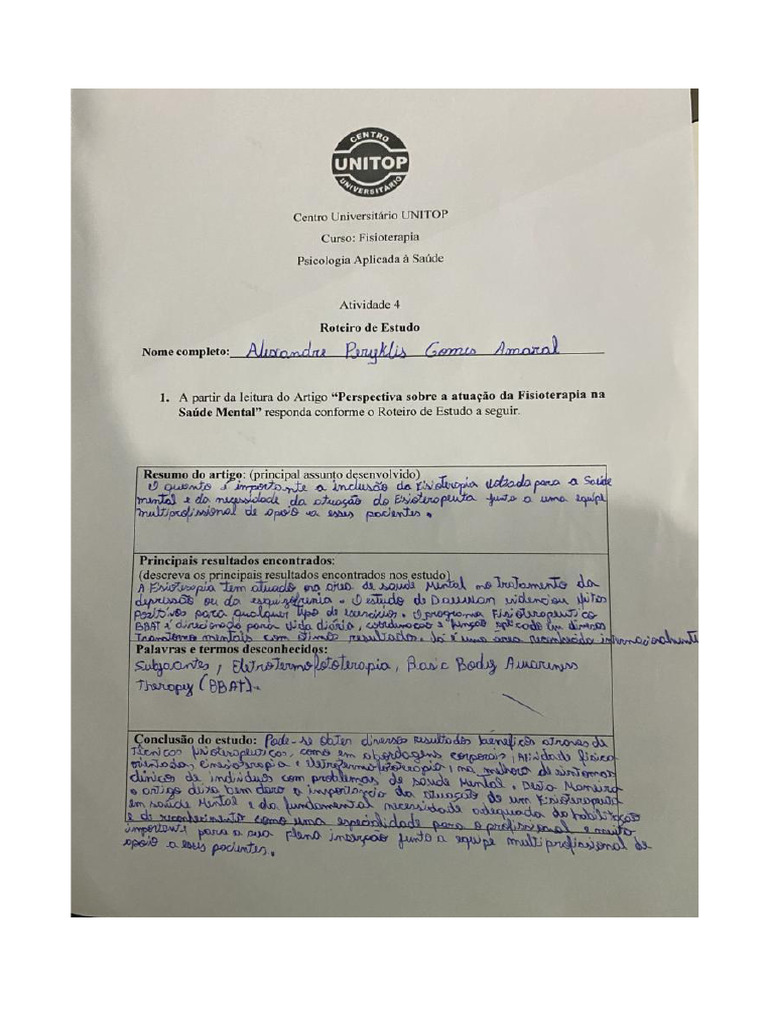 CENTRO
UNITOP
UNIVERSITÁRIO
Centro Universitário UNITOP
Curso: Fisioterapia
Psicologia Aplicada à Saúde
Atividade 4
Roteiro de Estudo
Nome completo: Alexandre Peryklis Gomes Amaral
1. A partir da leitura do Artigo “Perspectiva sobre a atuação da Fisioterapia na
Saúde Mental” responda conforme o Roteiro de Estudo a seguir.
Resumo do artigo: (principal assunto desenvolvido)
O quanto é importante a inclusão da Fisioterapia voltada para a Saúde
mental e da necessidade da atuação do Fisioterapeuta junto a uma equipe
multiprofissional de apoio a esses pacientes.
Principais resultados encontrados:
(descreva os principais resultados encontrados nos estudo)
A Fisioterapia tem atuado na área de saúde Mental no tratamento da
depressão ou da esquizofrenia. O estudo de evidenciou efeitos
positivos para qualquer tipo de exercício. O programa Fisioterapeutico
BBAT é direcionado para vida diária, coordenação e função aplicado em diversos
transtornos mentais com ótimos resultados. Já é uma área reconhecida internacionalmente
Palavras e termos desconhecidos:
Subjacentes, Eletrotermofototerapia, Basic Body Awareness
Therapy (BBAT).
Conclusão do estudo: Pode-se obter diversos resultados benéficos através de
técnicas fisioterapeuticas, como em abordagens corporais, atividade física
orientadas, cinesioterapia e eletrotermofototerapia, na melhora de sintomas
clínicos de indivíduos com problemas de saúde Mental. Desta Maneira
o artigo deixa bem claro a importancia da atuação de um Fisioterapeuta
em saúde Mental e da fundamental necessidade adequada da habilitação
e de reconhecimento como uma especialidade para o profissional e muito
importante para a sua plena inserção junto a equipe multiprofissional de
apoio a esses pacientes.